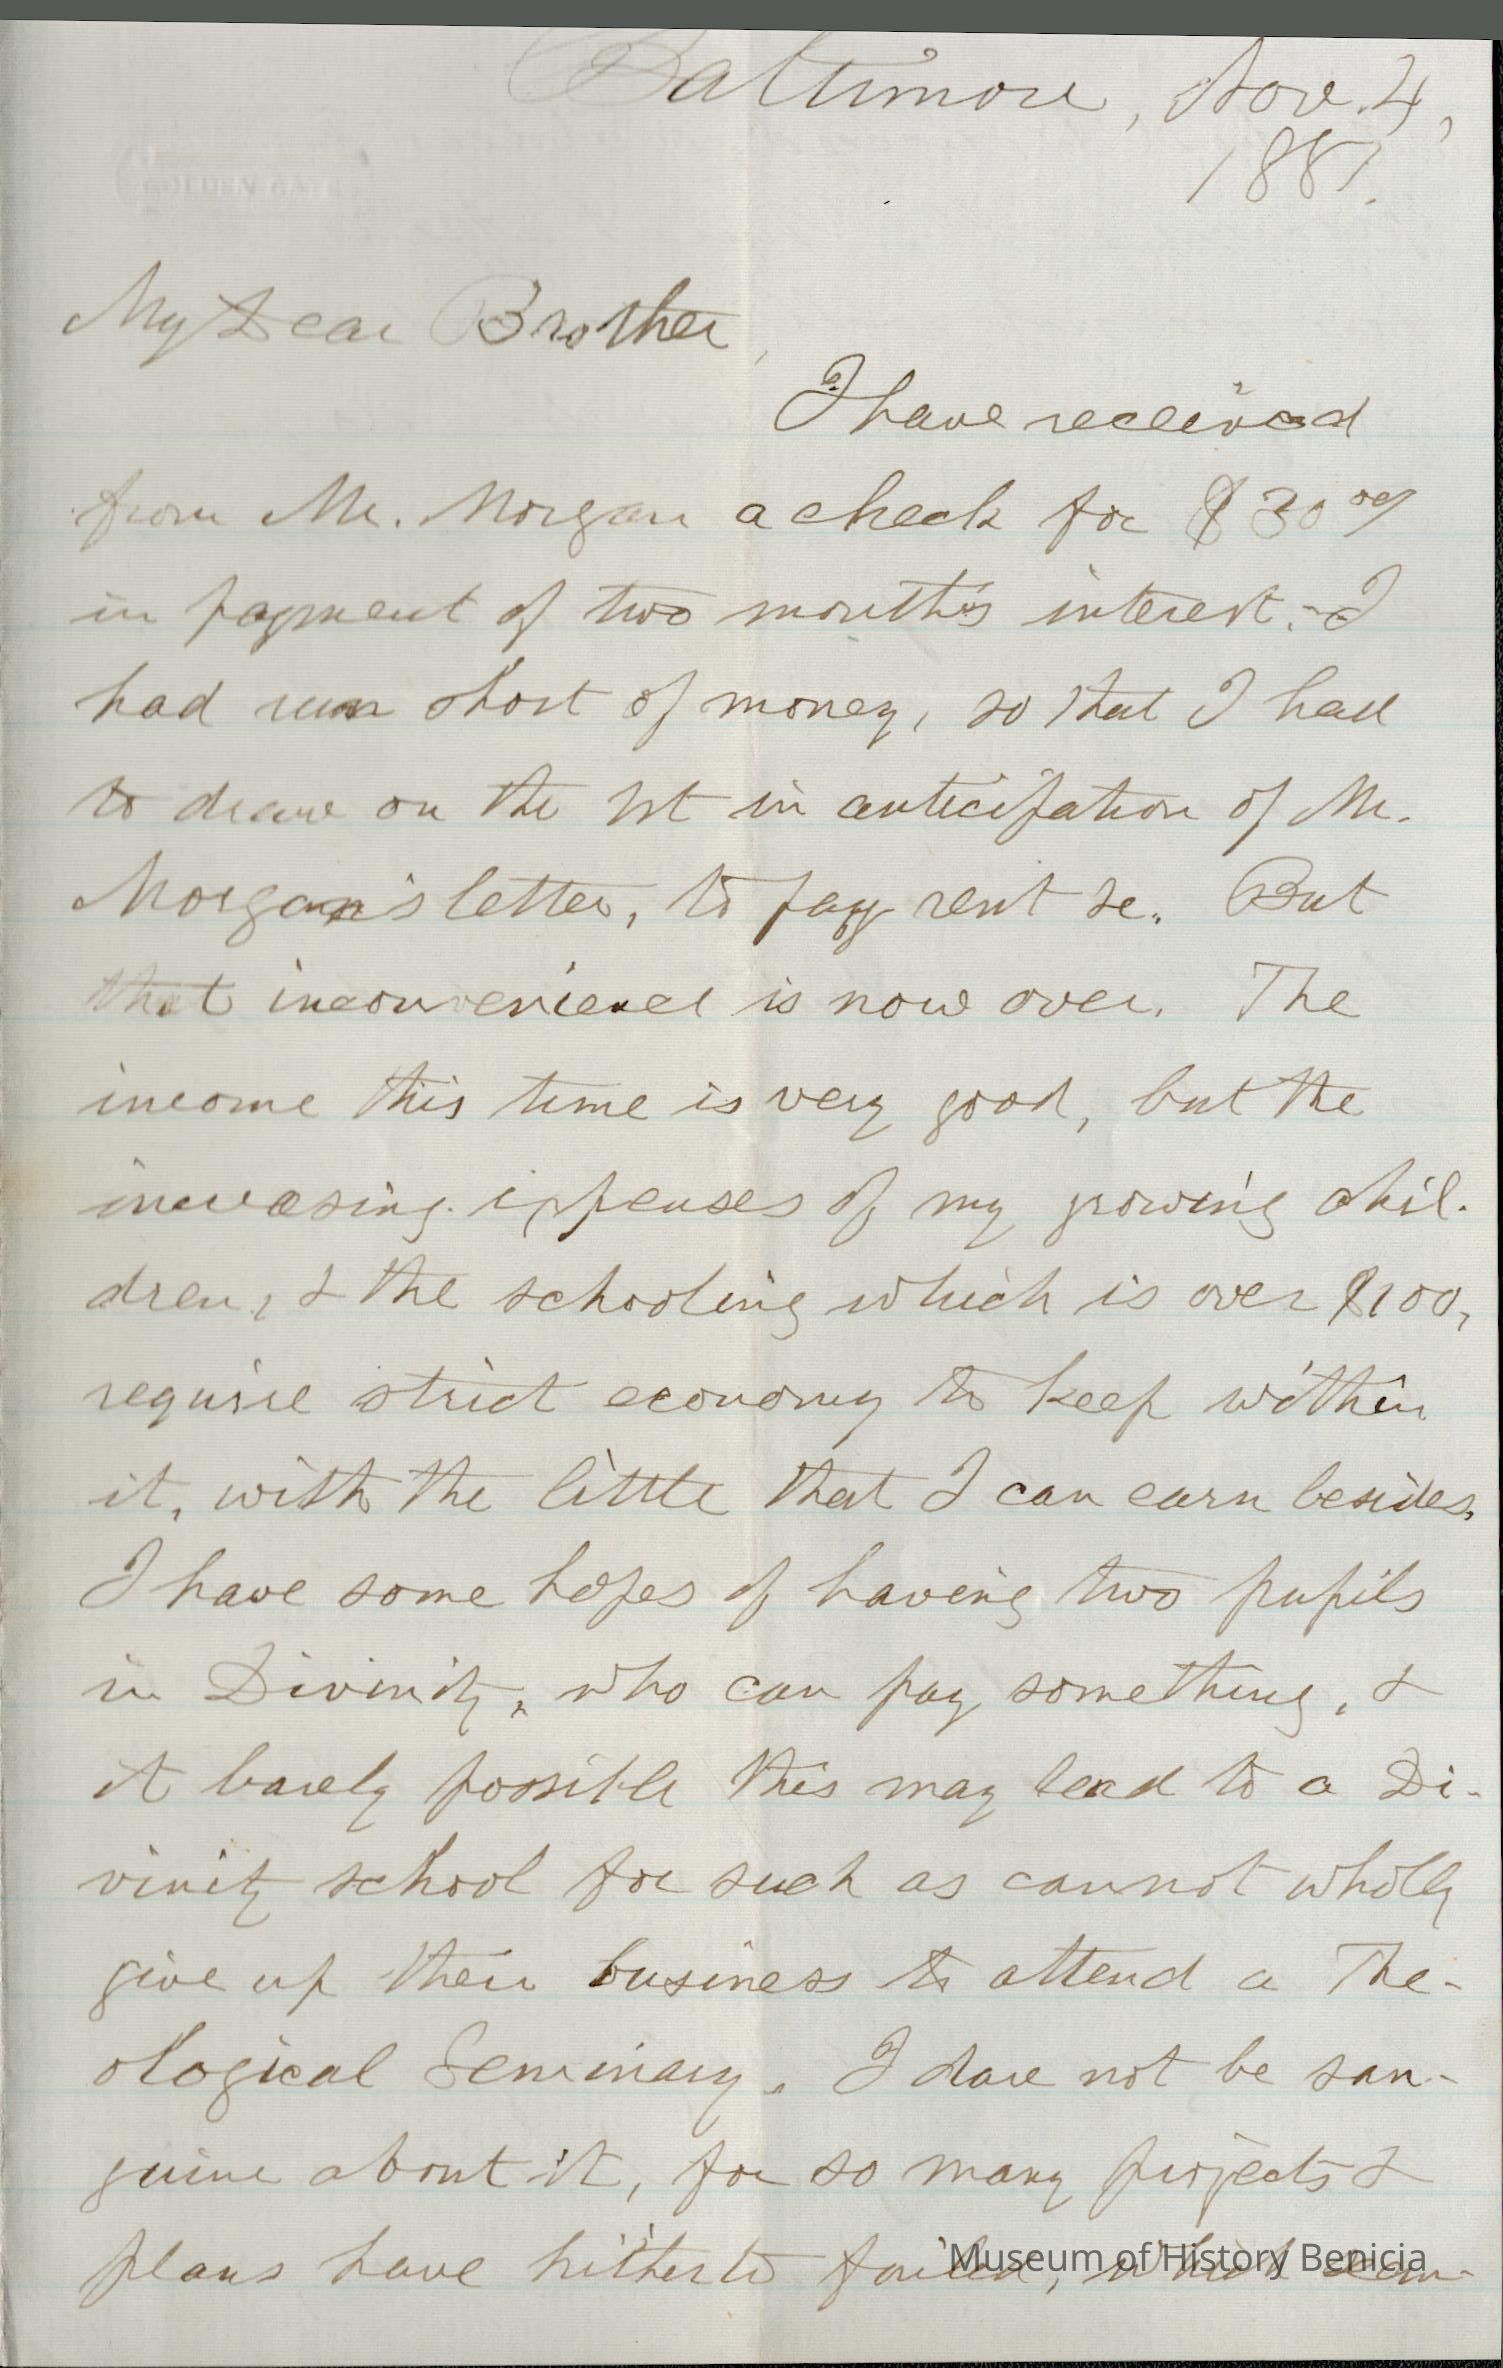 Baltimore, Nov. 4,
1881.
GOLDEN GATE
My Dear Brother,
I have received
from Mr. Morgan a check for $30 00/
in payment of two month's interest. I
had run short of money, so that I had
to draw on the 1st in anticipation of Mr.
Morgan's letter, to pay rent &c. But
that inconvenience is now over. The
income this time is very good, but the
increasing expenses of my growing chil-
dren, & the schooling which is over $100,
require strict economy to keep within
it, with the little that I can earn besides.
I have some hopes of having two pupils
in Divinity, who can pay something, &
it barely possible this may lead to a Di-
vinity school for such as cannot wholly
give up their business to attend a The-
ological Seminary. I dare not be san-
guine about it, for so many projects &
plans have hitherto failed, which
Museum of History Benicia